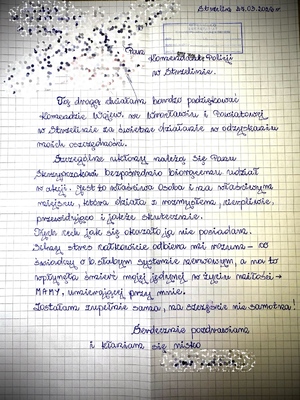 Strzelin 25.03.2026 r.
Pan
Komendant Policji
w Strzelinie.
Tą drogą chciałam bardzo podziękować
Komendzie Wojew. we Wrocławiu i Powiatowej
w Strzelinie za świetne działanie w odzyskaniu
moich oszczędności.
Szczególne ukłony należą się Panu
bezpośrednio biorącemu udział
w akcji. Jest to właściwa Osoba i na właściwym
miejscu, która działa z rozmysłem, cierpliwie,
przewidująco i jakże skutecznie.
Tych cech jak się okazało ja nie posiadam.
Silny stres całkowicie odbiera mi rozum - co
świadczy o b. słabym systemie nerwowym, a na to
wpłynęła śmierć mojej jedynej w życiu miłości →
MAMY, umierającej przy mnie.
Zostałam zupełnie sama, na szczęście nie samotna!
Serdecznie pozdrawiam
i kłaniam się nisko